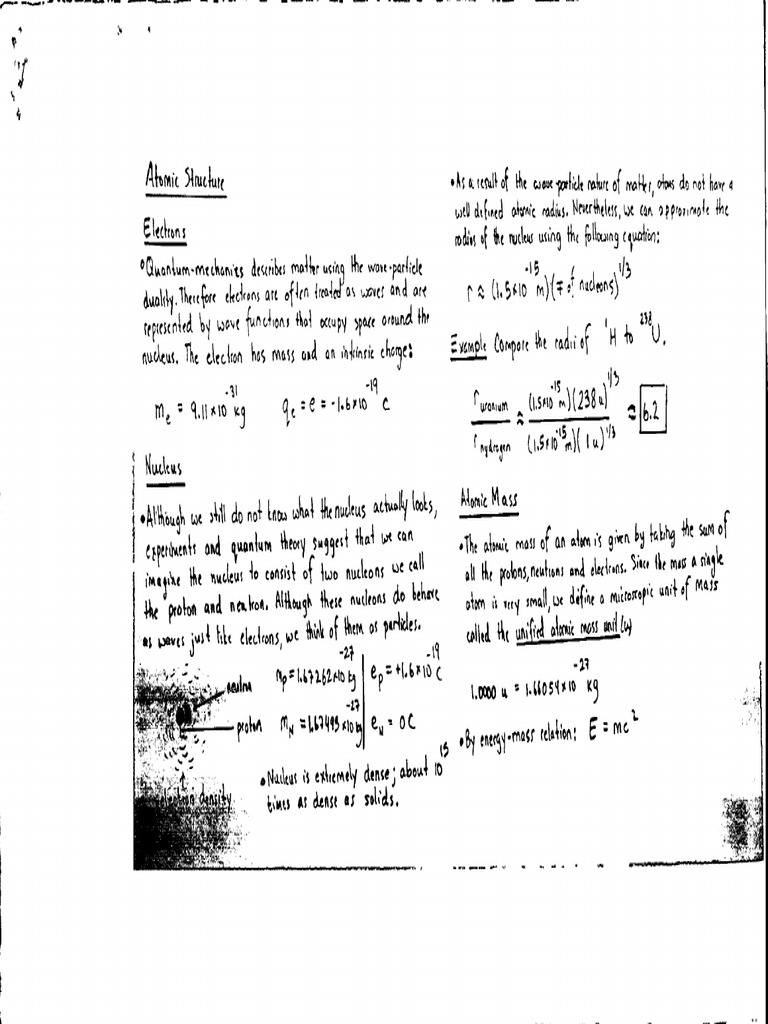 Atomic Structure
Electrons
• Quantum-mechanics describes matter using the wave-particle
duality. Therefore electrons are often treated as waves and are
represented by wave functions that occupy space around the
nucleus. The electron has mass and an intrinsic charge:
mₑ = 9.11×10⁻³¹ kg qₑ = e = -1.6×10⁻¹⁹ C
Nucleus
• Although we still do not know what the nucleus actually looks,
experiments and quantum theory suggest that we can
imagine the nucleus to consist of two nucleons we call
the proton and neutron. Although these nucleons do behave
as waves just like electrons, we think of them as particles.
neutron
proton
electron density
mp = 1.67262×10⁻²⁷ kg | ep = +1.6×10⁻¹⁹ C
m_N = 1.67493×10⁻²⁷ kg | e_N = 0C
• Nucleus is extremely dense; about 10¹⁵
times as dense as solids.
• As a result of the wave-particle nature of matter, atoms do not have a
well defined atomic radius. Nevertheless, we can approximate the
radius of the nucleus using the following equation:
r ≈ (1.5×10⁻¹⁵ m)(# of nucleons)^1/3
Example Compare the radii of ¹H to ²³⁸U.
r uranium / r hydrogen ≈ (1.5×10⁻¹⁵ m)(238 u)^1/3 / (1.5×10⁻¹⁵ m)(1 u)^1/3 ≈ 6.2
Atomic Mass
• The atomic mass of an atom is given by taking the sum of
all the protons, neutrons and electrons. Since the mass a single
atom is very small, we define a microscopic unit of mass
called the unified atomic mass unit (u)
1.0000 u = 1.66054×10⁻²⁷ kg
• By energy-mass relation: E = mc²